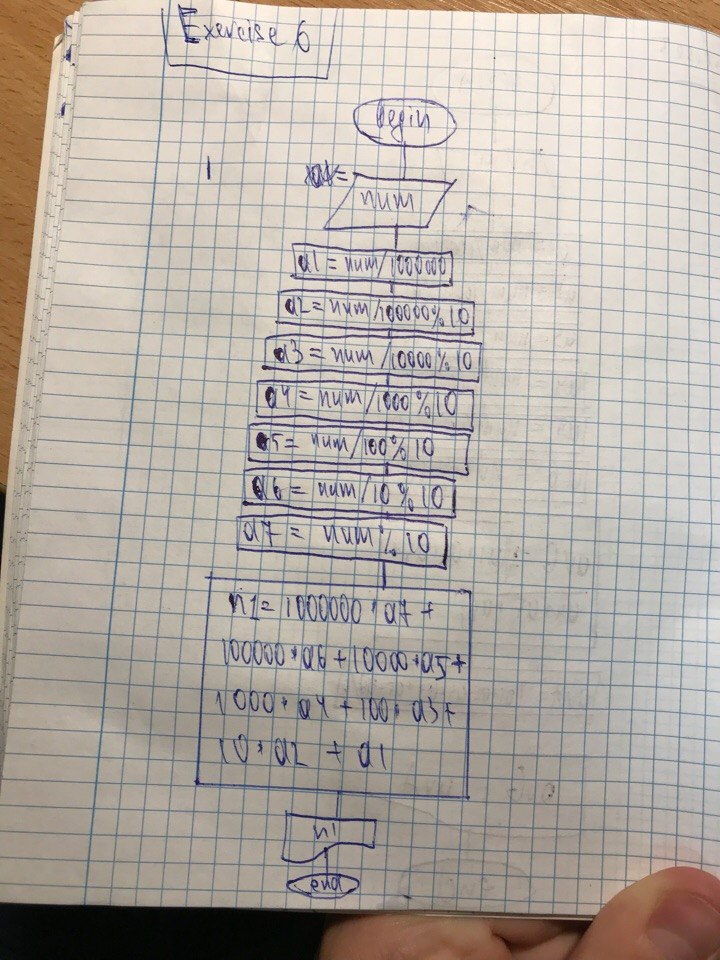 Exercise 6
begin
1
num
a1 = num/1000000
a2 = num/100000%10
a3 = num/10000%10
a4 = num/1000%10
a5 = num/100%10
a6 = num/10%10
a7 = num%10
n1 = 1000000*a7+
100000*a6+10000*a5+
1000*a4+100*a3+
10*a2 + a1
n1
end